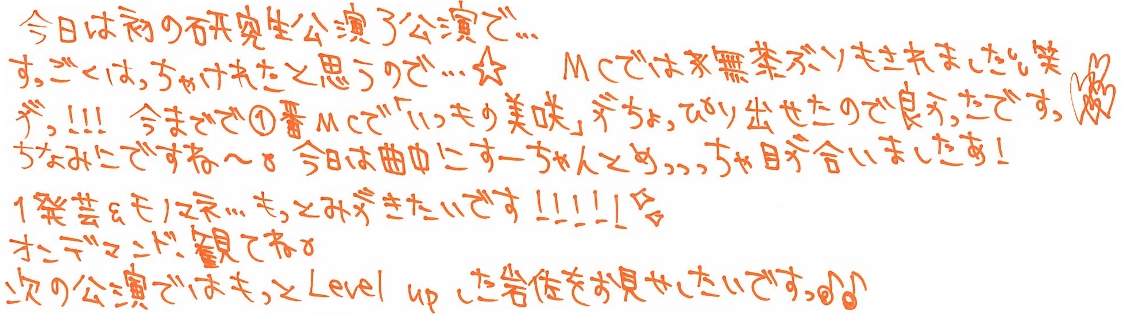 今日は初の研究生公演3公演で…
すっごくはっちゃけれたと思うので…☆ MCでは無茶ぶりもされましたし笑
がっ!!! 今までで①番MCで「いつもの美咲」がちょっぴり出せたので良かったですっ
ちなみにですね〜。今日は曲中にすーちゃんとめっっっちゃ目が合いましたあ!
1発芸&モノマネ…もっとみがきたいです!!!!!
オンデマンド、観てね。
次の公演ではもっとLevel upした岩佐をお見せしたいですっ♪♪